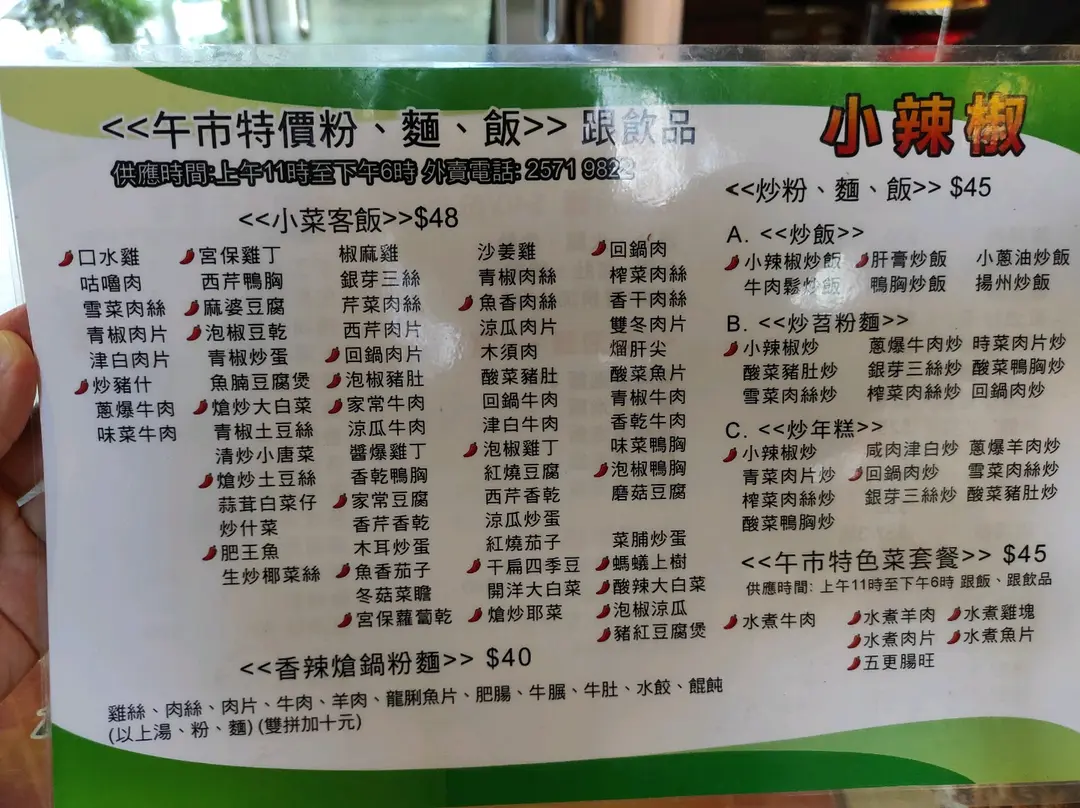 小辣椒
<<午市特價粉、麵、飯>> 跟飲品
供應時間:上午11時至下午6時 外賣電話: 2571 982
<<小菜客飯>>$48
口水雞 宮保雞丁 椒麻雞 沙姜雞 回鍋肉
咕嚕肉 西芹鴨胸 銀芽三絲 青椒肉絲 榨菜肉絲
雪菜肉絲 麻婆豆腐 芹菜肉絲 魚香肉絲 香干肉絲
青椒肉片 泡椒豆乾 西芹肉片 涼瓜肉片 雙冬肉片
津白肉片 青椒炒蛋 回鍋肉片 木須肉 熘肝尖
炒豬什 魚腩豆腐煲 泡椒豬肚 酸菜豬肚 酸菜魚片
蔥爆牛肉 熗炒大白菜 家常牛肉 回鍋牛肉 青椒牛肉
味菜牛肉 青椒土豆絲 涼瓜牛肉 津白牛肉 香乾牛肉
清炒小唐菜 醬爆雞丁 泡椒雞丁 味菜鴨胸
熗炒土豆絲 香乾鴨胸 紅燒豆腐 泡椒鴨胸
蒜茸白菜仔 家常豆腐 西芹香乾 磨菇豆腐
炒什菜 香芹香乾 涼瓜炒蛋
肥王魚 木耳炒蛋 紅燒茄子 菜脯炒蛋
生炒椰菜絲 魚香茄子 干扁四季豆 螞蟻上樹
冬菇菜瞻 開洋大白菜 酸辣大白菜
宮保蘿蔔乾 熗炒耶菜 泡椒涼瓜
豬紅豆腐煲
<<香辣熗鍋粉麵>> $40
雞絲、肉絲、肉片、牛肉、羊肉、龍脷魚片、肥腸、牛腸、牛肚、水餃、餛飩
(以上湯、粉、麵) (雙拼加十元)
<<炒粉、麵、飯>> $45
A. <<炒飯>>
小辣椒炒飯 肝膏炒飯 小蔥油炒飯
牛肉鬆炒飯 鴨胸炒飯 揚州炒飯
B. <<炒苕粉麵>>
小辣椒炒 蔥爆牛肉炒 時菜肉片炒
酸菜豬肚炒 銀芽三絲炒 酸菜鴨胸炒
雪菜肉絲炒 榨菜肉絲炒 回鍋肉炒
C. <<炒年糕>>
小辣椒炒 咸肉津白炒 蔥爆羊肉炒
青菜肉片炒 回鍋肉炒 雪菜肉絲炒
榨菜肉絲炒 銀芽三絲炒 酸菜豬肚炒
酸菜鴨胸炒
<<午市特色菜套餐>> $45
供應時間: 上午11時至下午6時 跟飯、跟飲品
水煮牛肉 水煮羊肉 水煮雞塊
水煮肉片 水煮魚片
五更腸旺